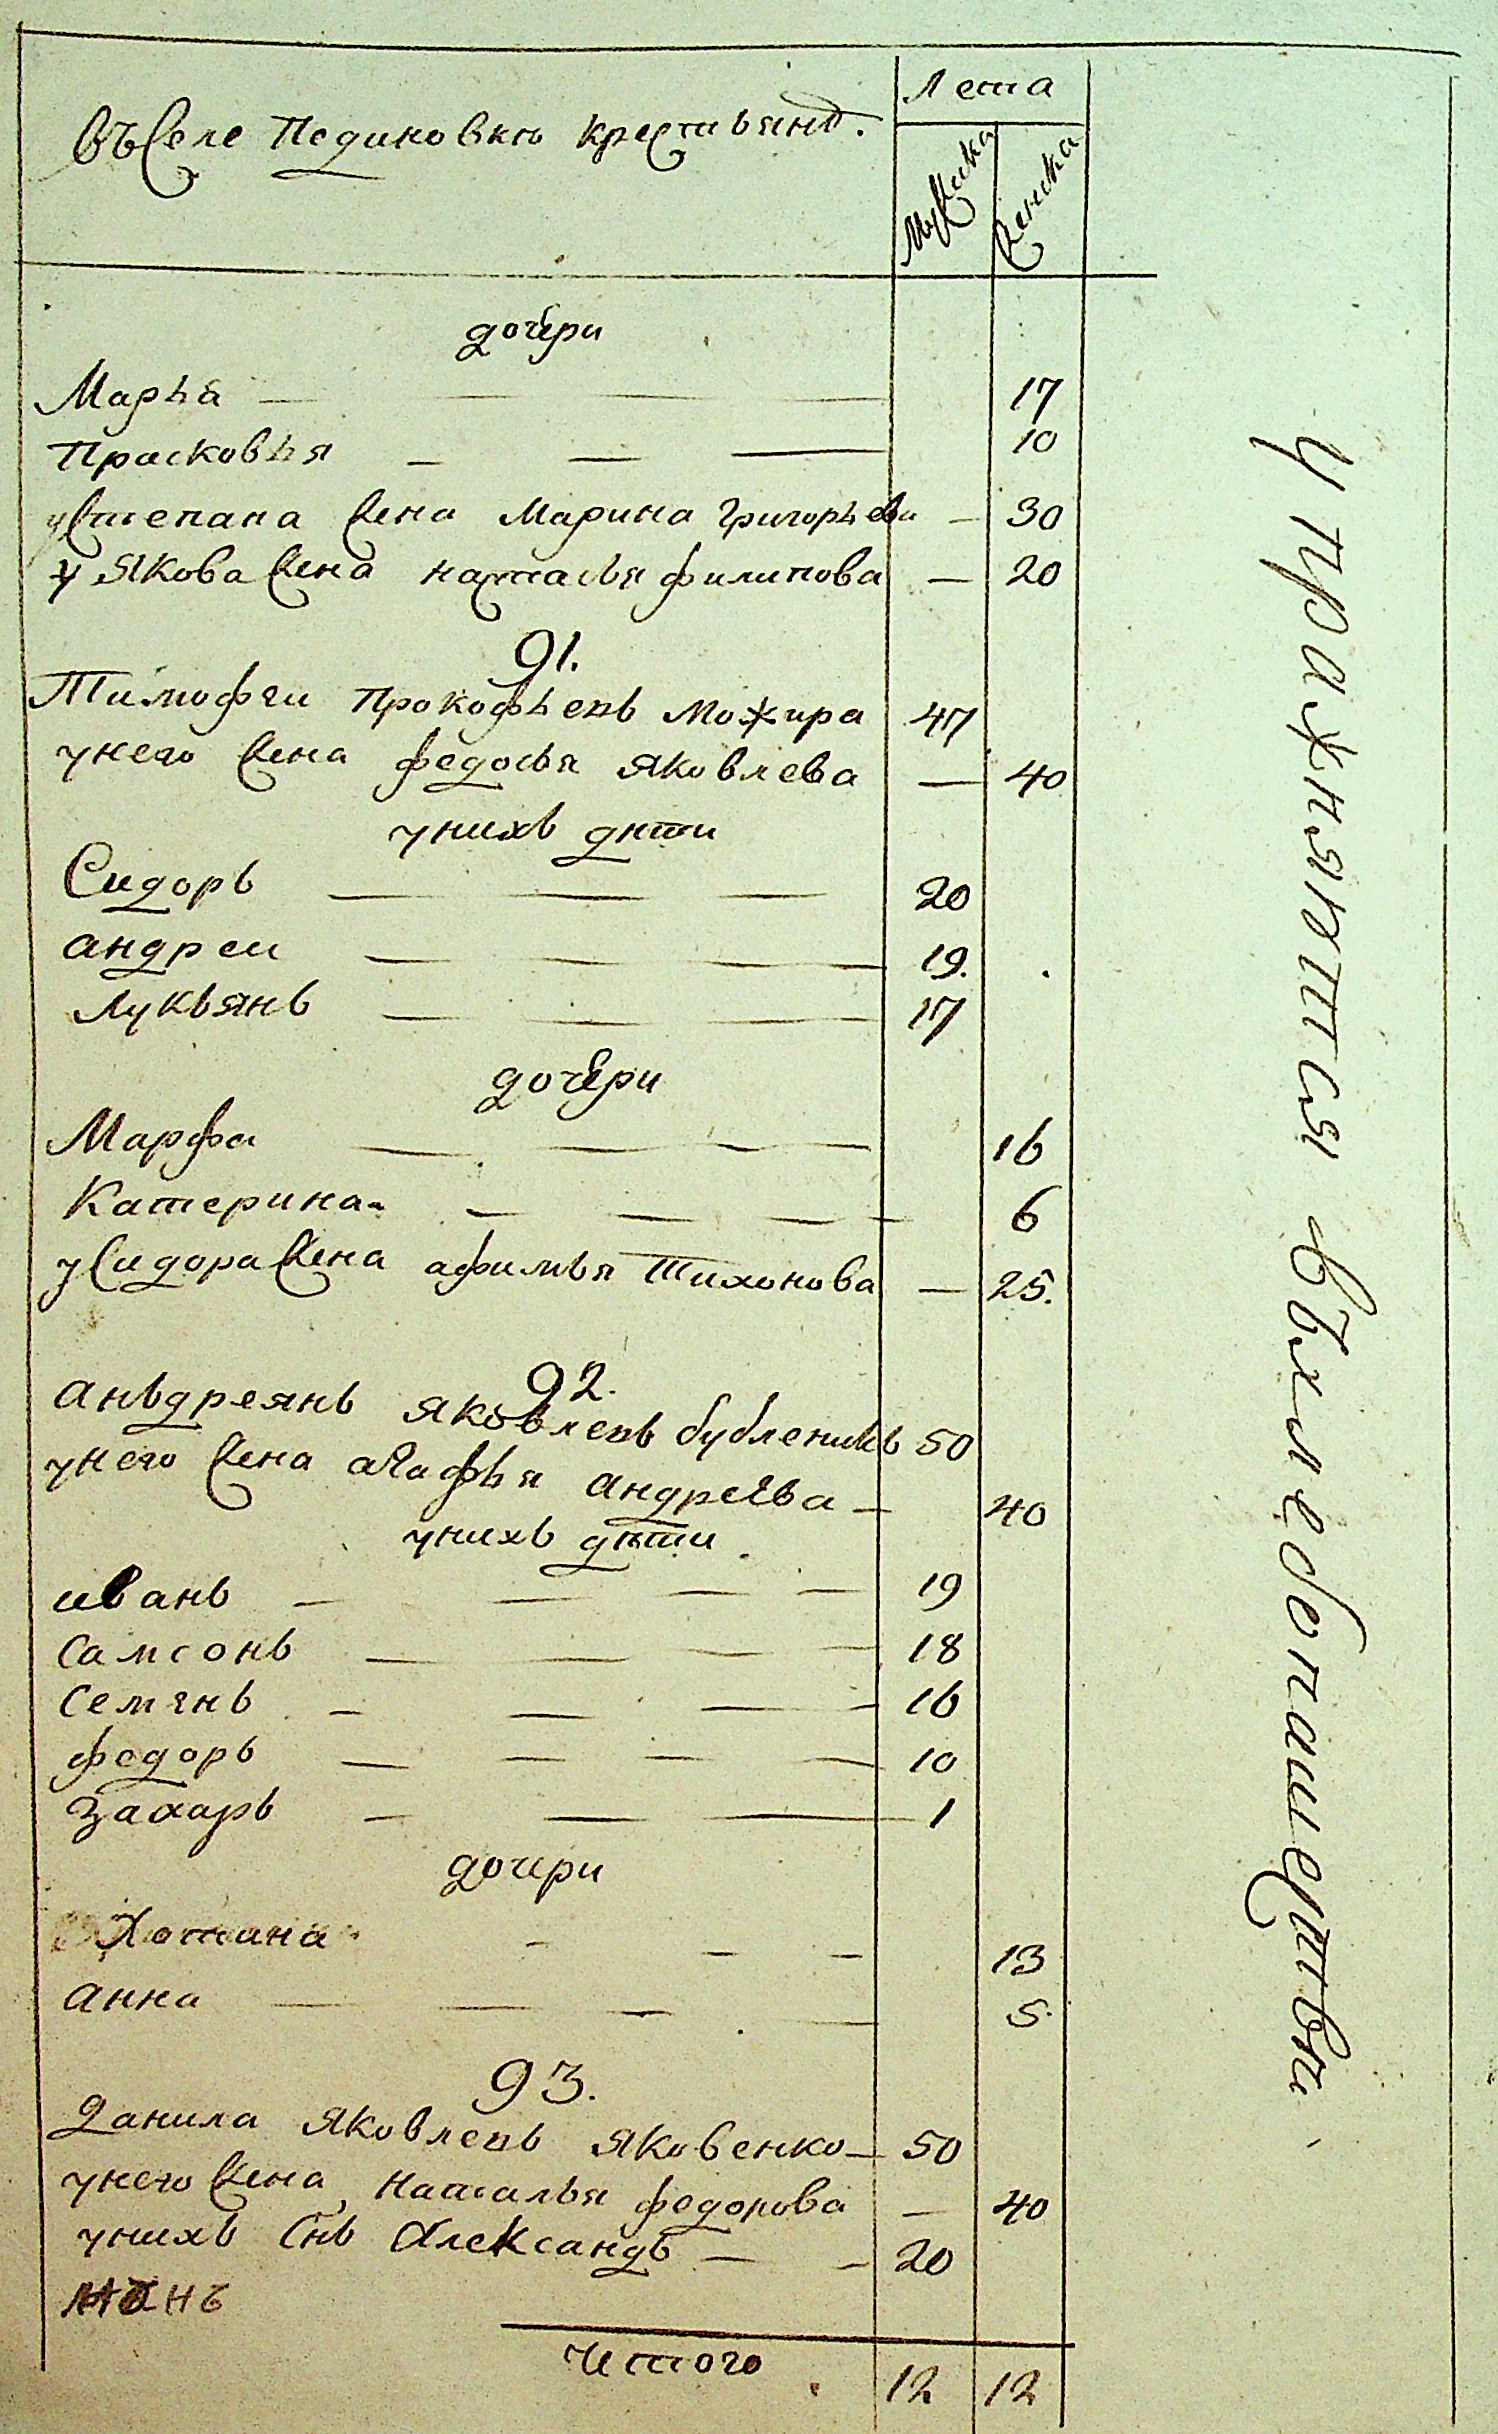 Въ Селе Пединовкѣ крестьянъ.
Лета
Мужска
Женска
дочери
Марья 17
Прасковья 10
у Степана жена Марина Григорьева 30
у Якова жена наталья филипова 20
91.
Тимофеи Прокофьевъ Можира 47
у него жена федосья Яковлева 40
у нихъ дѣти
Сидоръ 20
андреи 19.
Лукьянъ 17
дочери
Марфа 16
Катерина 6
у Сидора жена афимья Тихонова 25.
92.
аньдреянъ Яковлевъ бубленикъ 50
у него жена агафья андреева 40
у нихъ дѣти
иванъ 19
Самсонъ 18
Семенъ 16
федоръ 10
Захаръ 1
дочери
Хотина 13
анна 5.
93.
Данила Яковлевъ Яковенко 50
у него жена наталья федорова 40
у нихъ Снъ Александъ 20
Итого 12 12
упражняются въ хлебопашествѣ.